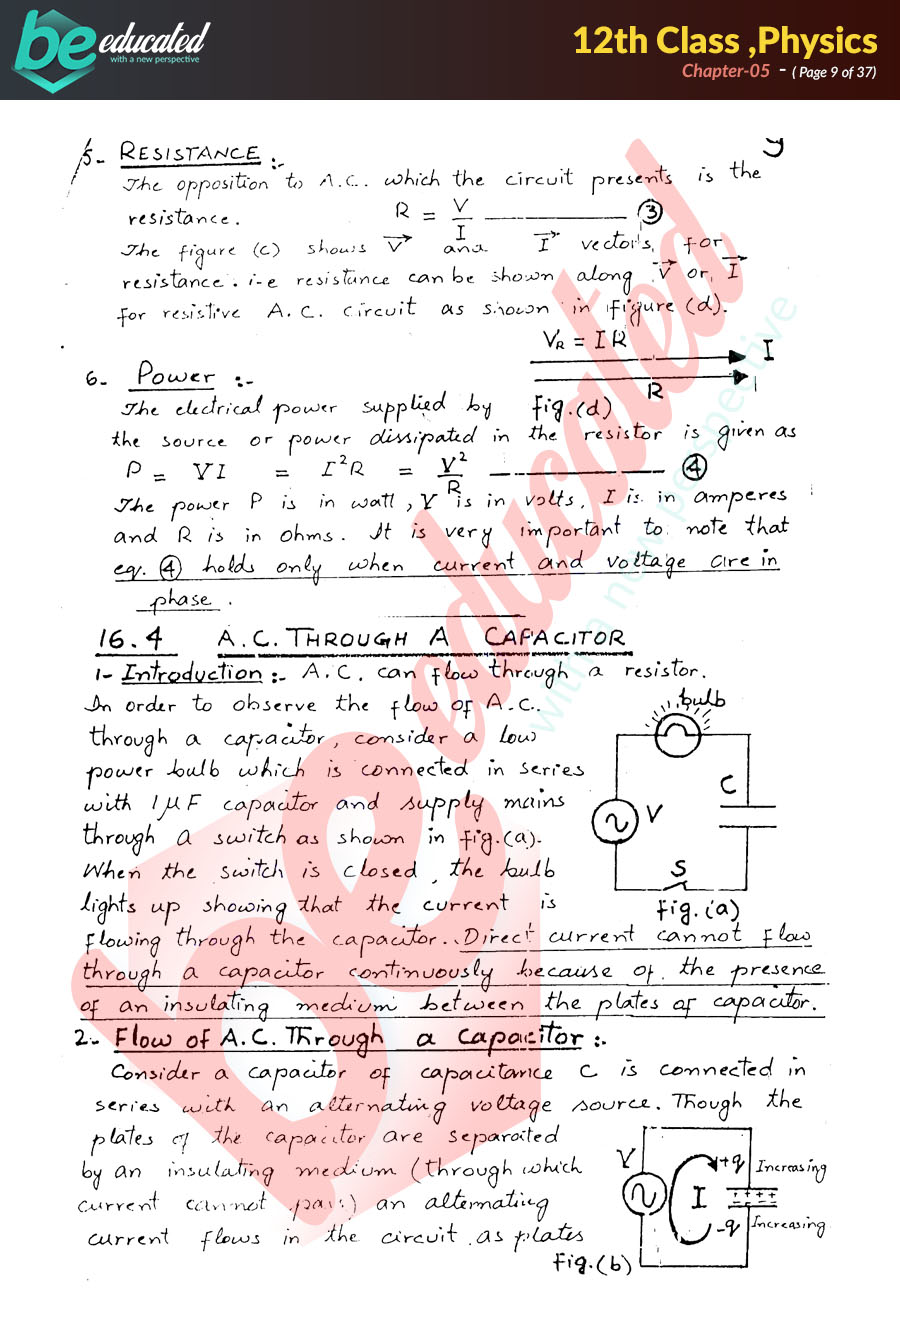 be educated
with a new perspective
12th Class ,Physics
Chapter-05 - ( Page 9 of 37)
5- RESISTANCE :-
The opposition to A.C. which the circuit presents is the
resistance. R = V/I ——— ③
The figure (c) shows V⃗ and I⃗ vectors, for
resistance. i-e resistance can be shown along V⃗ or I⃗
for resistive A.C. circuit as shown in figure (d).
V_R = I R
I
R
fig.(d)
6- Power :-
The electrical power supplied by
the source or power dissipated in the resistor is given as
P = VI = I²R = V²/R ——— ④
The power P is in watt, V is in volts, I is in amperes
and R is in ohms. It is very important to note that
eq. ④ holds only when current and voltage are in
phase.
16.4 A.C. THROUGH A CAPACITOR
1- Introduction :- A.C. can flow through a resistor.
In order to observe the flow of A.C.
through a capacitor, consider a low
power bulb which is connected in series
with 1μF capacitor and supply mains
through a switch as shown in fig.(a).
When the switch is closed, the bulb
lights up showing that the current is
flowing through the capacitor. Direct current cannot flow
through a capacitor continuously because of the presence
of an insulating medium between the plates of capacitor.
bulb
C
V
S
fig.(a)
2- Flow of A.C. Through a Capacitor :-
Consider a capacitor of capacitance C is connected in
series with an alternating voltage source. Though the
plates of the capacitor are separated
by an insulating medium (through which
current cannot pass) an alternating
current flows in the circuit as plates
V
+q Increasing
I
++++
-q Increasing
Fig.(b)
be educated
with a new perspective